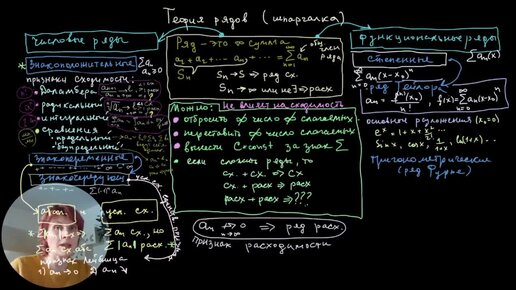 Теория рядов (шпаргалка)
числовые ряды
Знакоположительные
Σ aₙ
aₙ ≥ 0
признаки сходимости:
Даламбера
радикальный
интегральный
сравнения
- предельный
Знакопеременные
Знакочередующиеся
абс.
усл. сх.
Σ aₙ сх., но
Σ |aₙ| расх.
Σ aₙ сх абс
признак Лейбница
1) aₙ → 0 2) aₙ ↘
Ряд – это ∞ сумма
a₁ + a₂ + ... aₙ ... = Σ aₙ
общ член ряда
Sₙ
Sₙ → S ⇒ ряд сх.
Sₙ → ∞ или не ∃ ⇒ расх
Можно:
не влияет на сходимость
отбросить ≠ число слагаемых
переставить ≠ число слагаемых
вынести C=const за знак Σ
если сложить ряды, то
сх. + сх. ⇒ сх
сх + расх ⇒ расх
расх + расх ⇒ ???
aₙ ↛ 0 ⇒ ряд расх.
n→∞
признак расходимости
функциональные ряды
Σ aₙ(x)
степенные
aₙ(x-x₀)ⁿ
ряд Тейлора
основные разложения (x₀=0)
sin x, cos x,
Тригонометрические
(ряд Фурье)